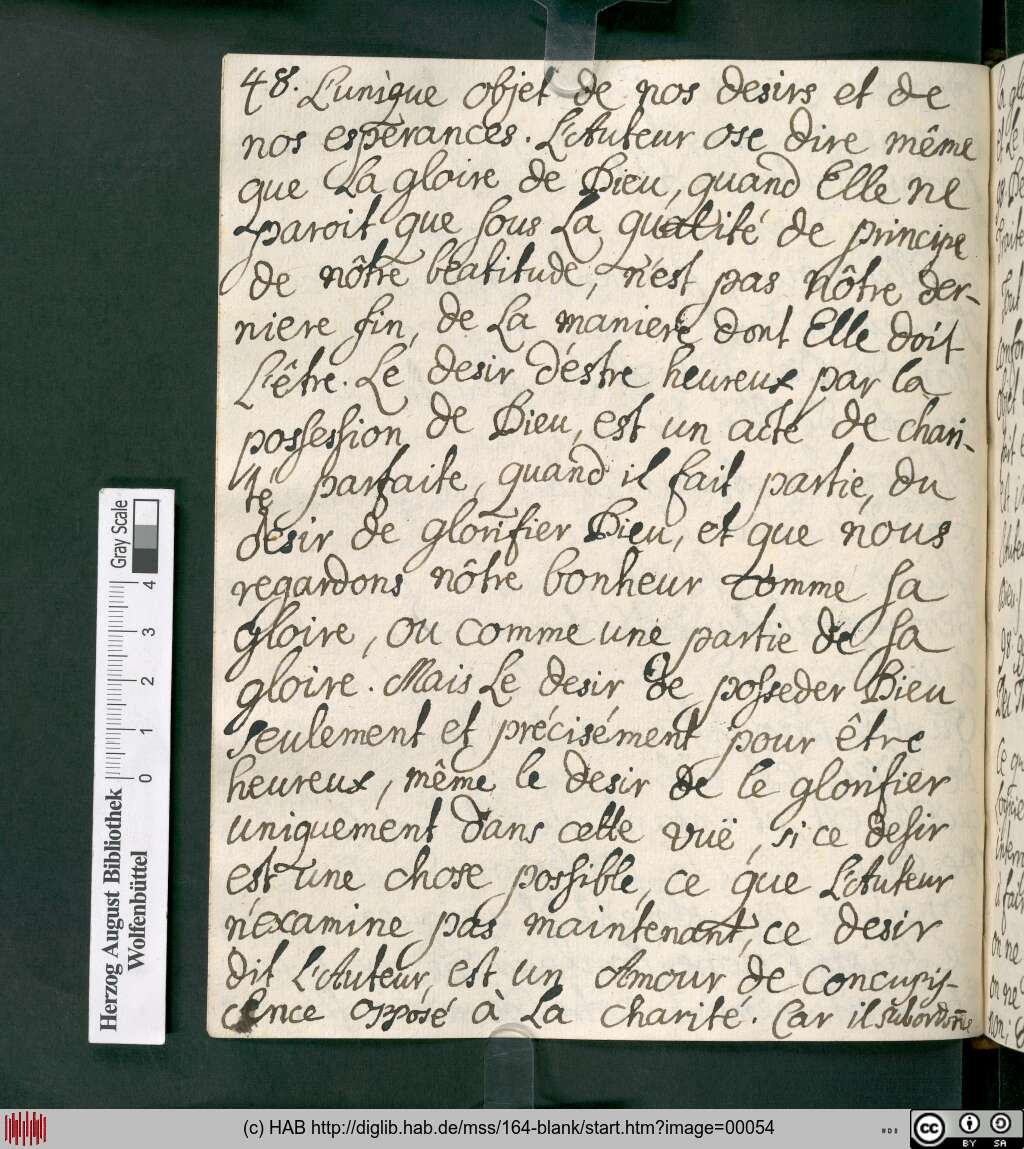 48. L'unique objet de nos desirs et de
nos esperances. L'Auteur ose dire même
que La gloire de Dieu, quand Elle ne
paroit que sous La qualité de principe
de nôtre beatitude, n'est pas nôtre der-
niere fin, de La maniere dont Elle doit
L'être. Le desir d'estre heureux par la
possession de Dieu, est un acte de chari-
té parfaite, quand il fait partie, du
desir de glorifier Dieu, et que nous
regardons nôtre bonheur comme sa
gloire, ou comme une partie de sa
gloire. Mais Le desir de posseder Dieu
seulement et précisément pour être
heureux, même le desir de le glorifier
uniquement dans cette vuë, si ce desir
est une chose possible, ce que L'Auteur
n'examine pas maintenant, ce desir
dit L'Auteur, est un Amour de Concupis-
cence opposé à La charité. Car il subordoñe
Gray Scale
4 3 2 1 0
Herzog August Bibliothek
Wolfenbüttel
(c) HAB http://diglib.hab.de/mss/164-blank/start.htm?image=00054
cc BY SA